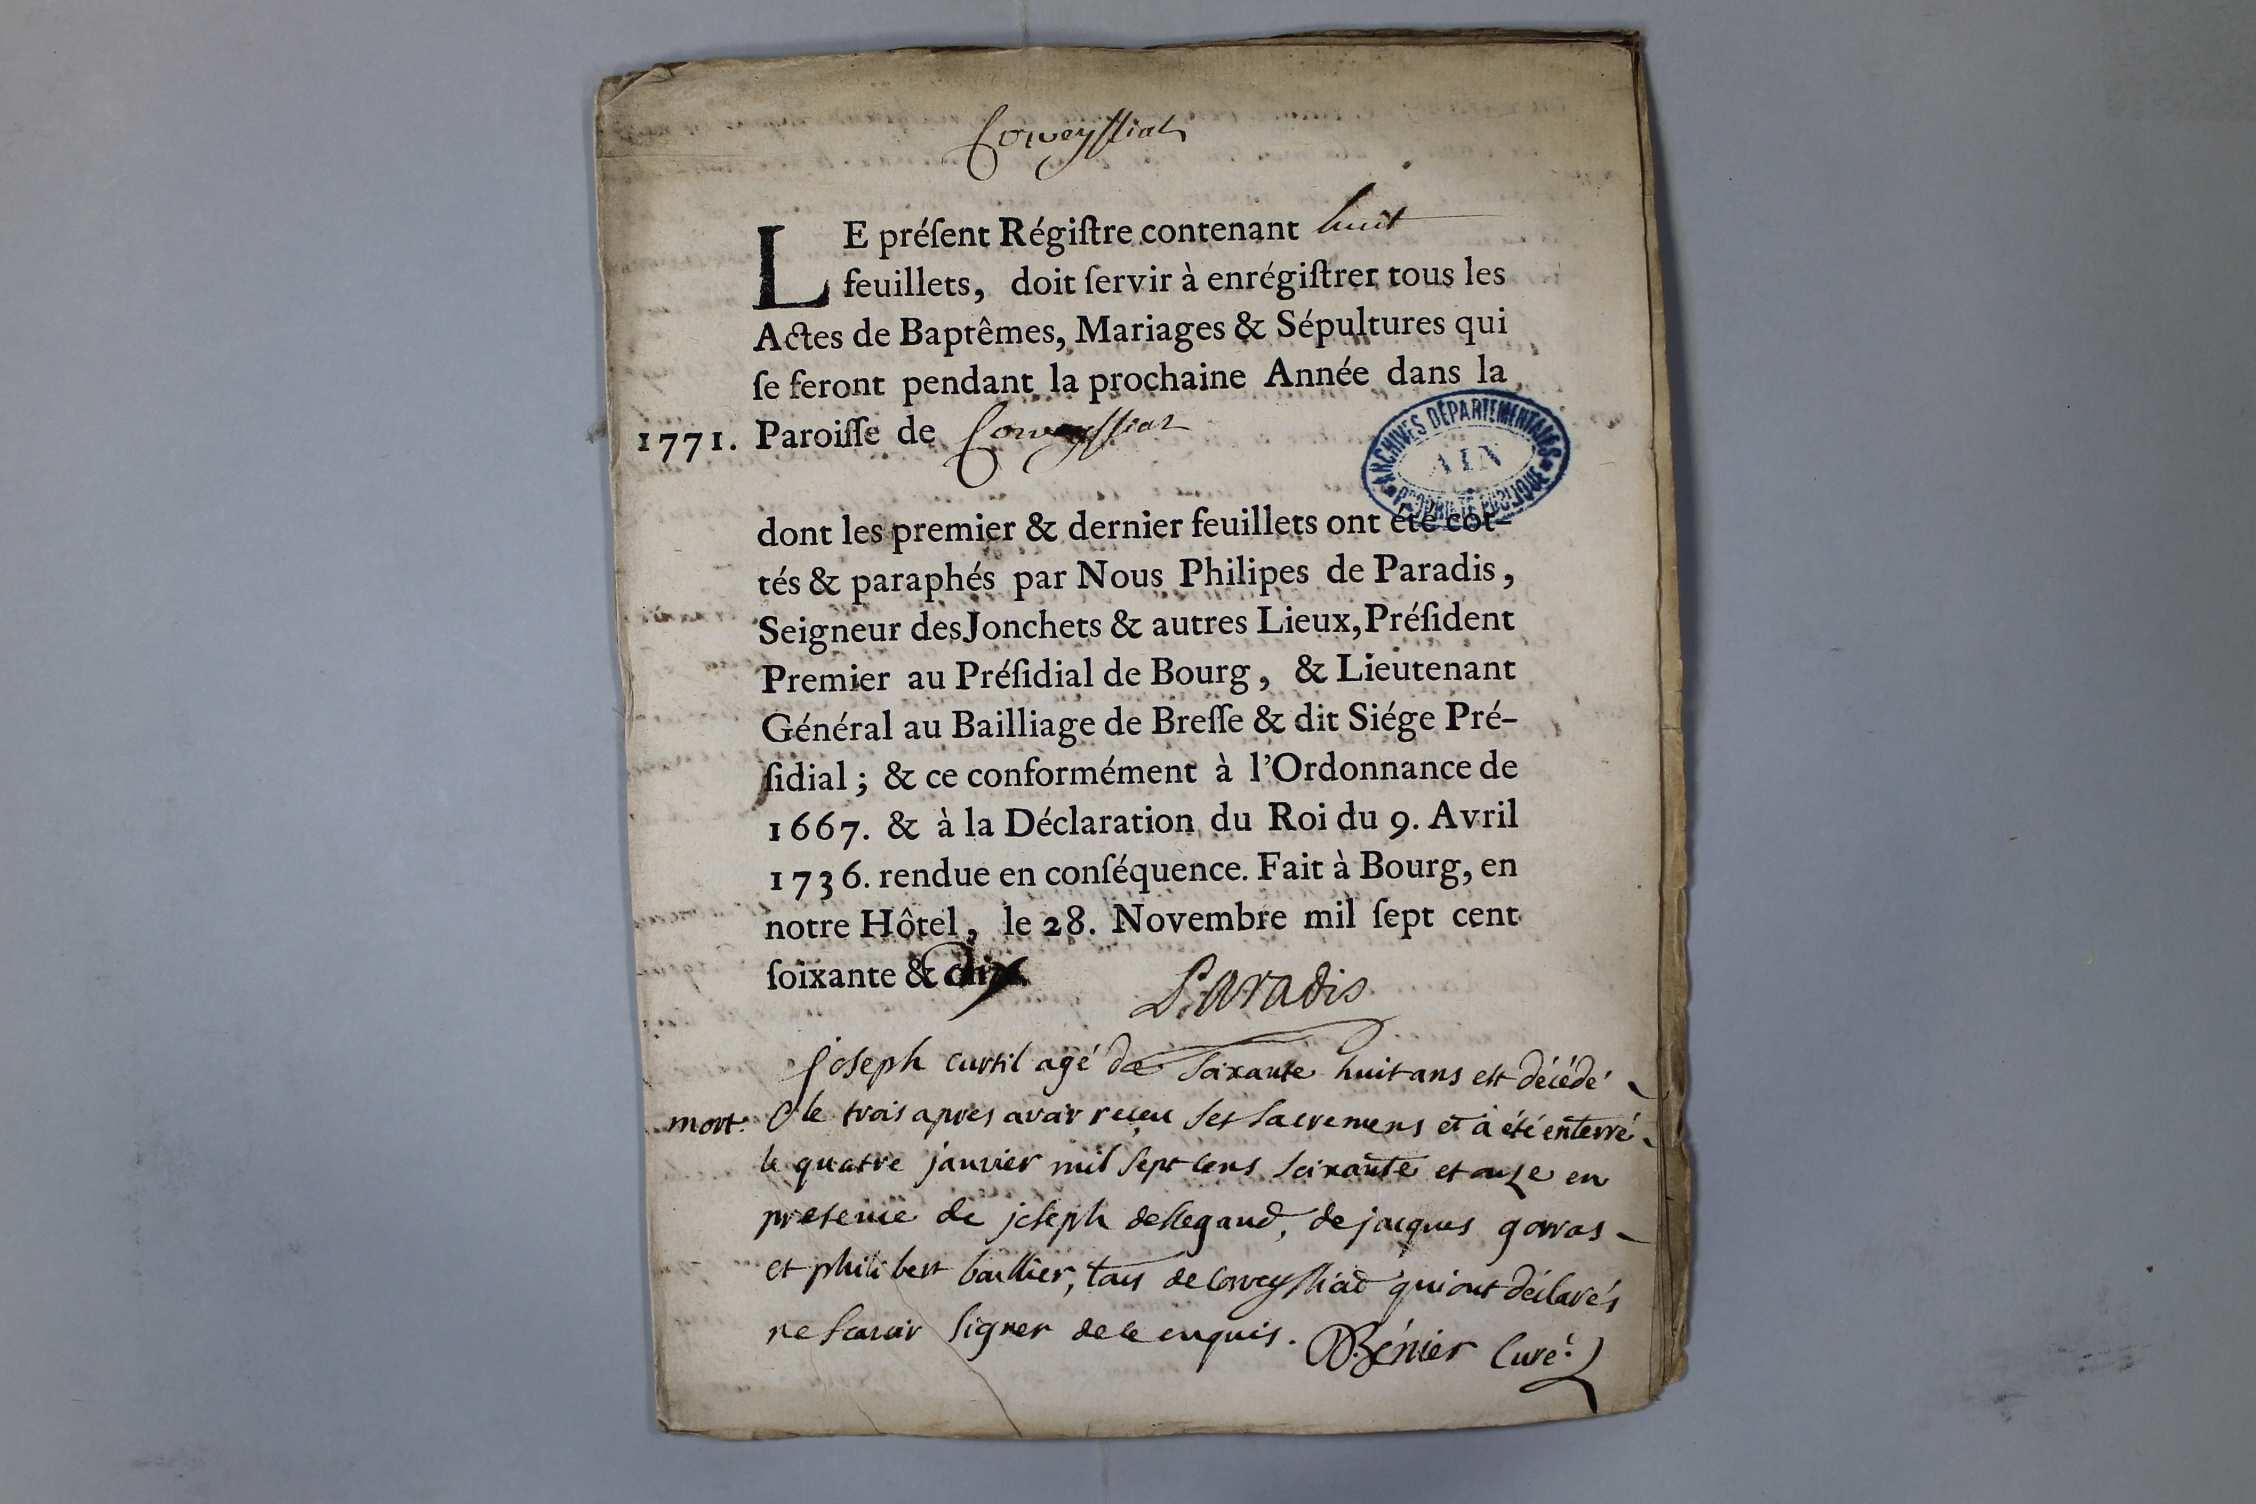 Corveyssiat
LE préſent Régiſtre contenant huit
feuillets, doit ſervir à enrégiſtrer tous les
Actes de Baptêmes, Mariages & Sépultures qui
ſe feront pendant la prochaine Année dans la
1771. Paroiſſe de Corveyssiat
ARCHIVES DÉPARTEMENTALES
AIN
PROPRIÉTÉ PUBLIQUE
dont les premier & dernier feuillets ont été cot-
tés & paraphés par Nous Philipes de Paradis,
Seigneur des Jonchets & autres Lieux, Préſident
Premier au Préſidial de Bourg, & Lieutenant
Général au Bailliage de Breſſe & dit Siége Pré-
ſidial; & ce conformément à l'Ordonnance de
1667. & à la Déclaration du Roi du 9. Avril
1736. rendue en conſéquence. Fait à Bourg, en
notre Hôtel, le 28. Novembre mil ſept cent
ſoixante & dix
Paradis
joseph curtil agé de soixante huit ans est décédé
mort. le trois apres avoir reçeu ses sacremens et à été enterré
le quatre janvier mil sept cens soixante et onze en
presence de joseph dellegand, de jacques gorras
et philibert baillier, tous de corveyssiat qui ont déclarés
ne scavoir signer de ce enquis. Bénier Curé